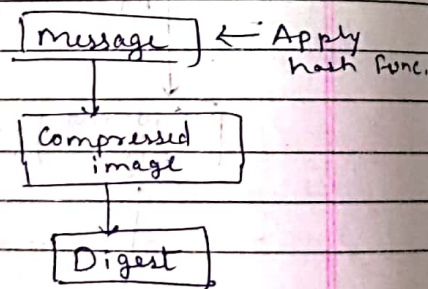 Message ← Apply
hash func.
Compressed
image
Digest